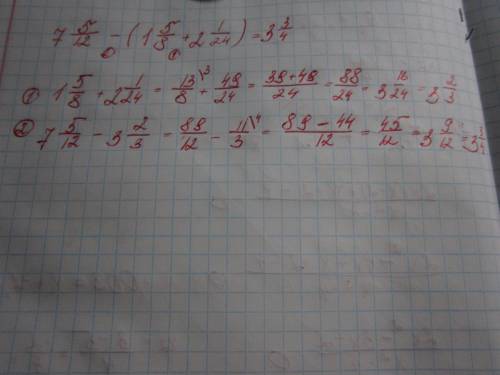 7 5/12 - (1 5/8 + 2 1/24) = 3 3/4
① 1 5/8 + 2 1/24 = 13/8 \3 + 49/24 = 39+49/24 = 88/24 = 3 16/24 = 3 2/3
② 7 5/12 - 3 2/3 = 89/12 - 11/3 \4 = 89-44/12 = 45/12 = 3 9/12 = 3 3/4